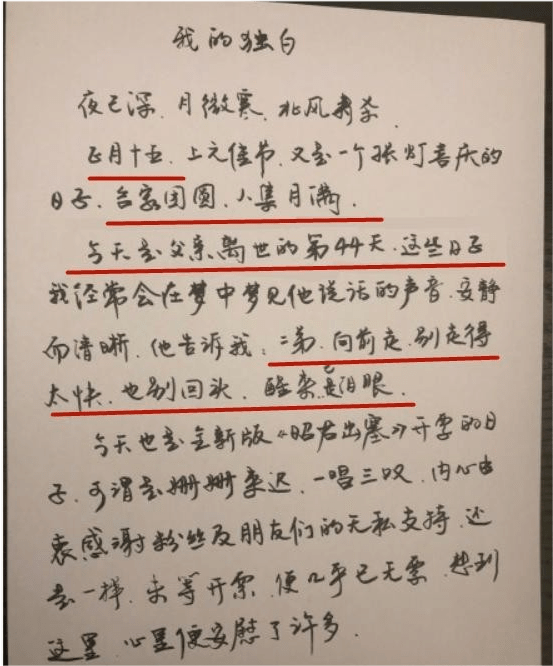 我的独白
夜已深，月微寒，北风肃杀，
正月十五，上元佳节，又是一个张灯喜庆的
日子，合家团圆，人集月满，
今天是父亲离世的第44天，这些日子
我经常会在梦中梦见他说话的声音，安静
而清晰，他告诉我：二弟，向前走，别走得
太快，也别回头，醒来已是泪眼，
今天也是全新版《昭君出塞》开票的日
子，可谓是姗姗来迟，一唱三叹，内心由
衷感谢粉丝及朋友们的无私支持，还
是一样，未等开票，便几乎已无票，想到
这里，心里便安慰了许多，